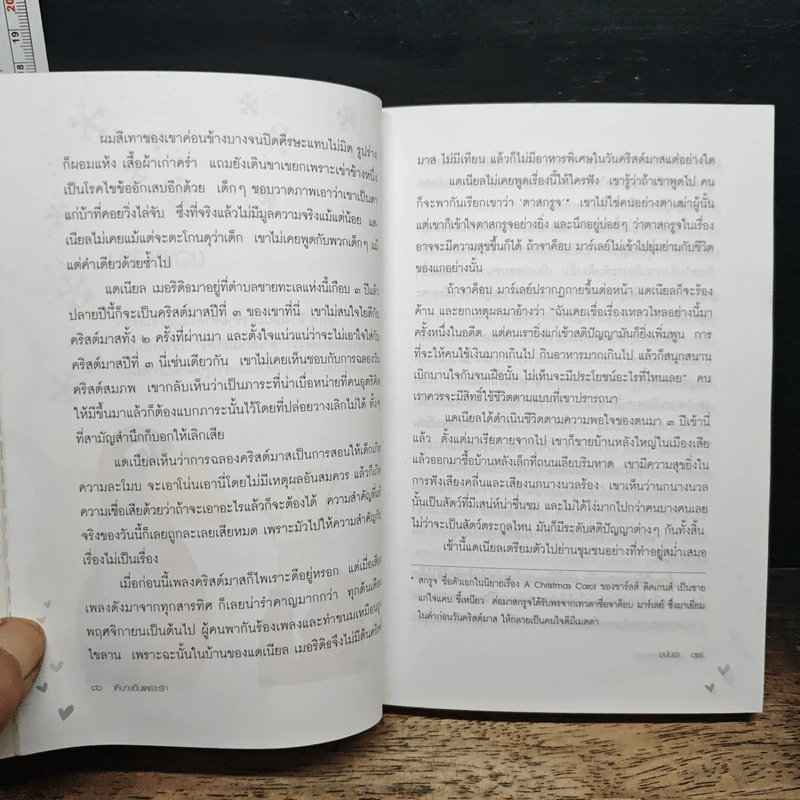 20
19
18
ผมสีเทาของเขาค่อนข้างบางจนปิดศีรษะแทบไม่มิด รูปร่าง
ก็ผอมแห้ง เสื้อผ้าเก่าคร่ำ แถมยังเดินขาเขยกเพราะเข่าข้างหนึ่ง
เป็นโรคไขข้ออักเสบอีกด้วย เด็กๆ ชอบวาดภาพเอาว่าเขาเป็นตา
แก่บ้าที่คอยวิ่งไล่จับ ซึ่งที่จริงแล้วไม่มีมูลความจริงแม้แต่น้อย แด-
เนียลไม่เคยแม้แต่จะตะโกนดุว่าเด็ก เขาไม่เคยพูดกับพวกเด็กๆ แม้
แต่คำเดียวด้วยซ้ำไป
แดเนียล เมอริดิธมาอยู่ที่ตำบลชายทะเลแห่งนี้เกือบ ๓ ปีแล้ว
ปลายปีนี้ก็จะเป็นคริสต์มาสปีที่ ๓ ของเขาที่นี่ เขาไม่สนใจไยดีกับ
คริสต์มาสทั้ง ๒ ครั้งที่ผ่านมา และตั้งใจแน่วแน่ว่าจะไม่เอาใจใส่กับ
คริสต์มาสปีที่ ๓ นี่เช่นเดียวกัน เขาไม่เคยเห็นชอบกับการฉลองวัน
คริสต์สมภพ เขากลับเห็นว่าเป็นภาระที่น่าเบื่อหน่ายที่คนอุตริคิด
ให้มีขึ้นมาแล้วก็ต้องแบกภาระนั้นไว้โดยที่ปล่อยวางเลิกไม่ได้ ทั้งๆ
ที่สามัญสำนึกก็บอกให้เลิกเสีย
แดเนียลเห็นว่าการฉลองคริสต์มาสเป็นการสอนให้เด็กเกิด
ความละโมบ จะเอาโน่นเอานี่โดยไม่มีเหตุผลอันสมควร แล้วก็เกิด
ความเชื่อเสียด้วยว่าถ้าจะเอาอะไรแล้วก็จะต้องได้ ความสำคัญที่แท้
จริงของวันนี้ก็เลยถูกละเลยเสียหมด เพราะมัวไปให้ความสำคัญกับ
เรื่องไม่เป็นเรื่อง
เมื่อก่อนนี้เพลงคริสต์มาสก็ไพเราะดีอยู่หรอก แต่เมื่อเสียง
เพลงดังมาจากทุกสารทิศ ก็เลยน่ารำคาญมากกว่า ทุกต้นเดือน
พฤศจิกายนเป็นต้นไป ผู้คนพากันร้องเพลงและทำขนมเหมือนถูก
ไขลาน เพราะฉะนั้นในบ้านของแดเนียล เมอริดิธจึงไม่มีต้นคริสต์
๑๖ เค้บานเป็นเพราะรัก
มาส ไม่มีเทียน แล้วก็ไม่มีอาหารพิเศษในวันคริสต์มาสแต่อย่างใด
แดเนียลไม่เคยพูดเรื่องนี้ให้ใครฟัง เขารู้ว่าถ้าเขาพูดไป คน
ก็จะพากันเรียกเขาว่า 'ตาสกรูจ'* เขาไม่ใช่คนอย่างตาเฒ่าผู้นั้น
แต่เขาก็เข้าใจตาสกรูจอย่างยิ่ง และนึกอยู่บ่อยๆ ว่าตาสกรูจในเรื่อง
อาจจะมีความสุขขึ้นก็ได้ ถ้าจาค็อบ มาร์เลย์ไม่เข้าไปยุ่มย่ามกับชีวิต
ของแกอย่างนั้น
ถ้าจาค็อบ มาร์เลย์ปรากฏกายขึ้นต่อหน้า แดเนียลก็จะร้อง
ค้าน และยกเหตุผลมาอ้างว่า "ฉันเคยเชื่อเรื่องเหลวไหลอย่างนี้มา
ครั้งหนึ่งในอดีต แต่คนเรายิ่งแก่เข้าสติปัญญามันก็ยิ่งเพิ่มพูน การ
ที่จะให้คนใช้เงินมากเกินไป กินอาหารมากเกินไป แล้วก็สนุกสนาน
เบิกบานใจกันจนเฝือนั้น ไม่เห็นจะมีประโยชน์อะไรที่ไหนเลย" คน
เราควรจะมีสิทธิ์ใช้ชีวิตตามแบบที่เขาปรารถนา
แดเนียลได้ดำเนินชีวิตตามความพอใจของตนมา ๓ ปีเข้านี่
แล้ว ตั้งแต่มาเรียตายจากไป เขาก็ขายบ้านหลังใหญ่ในเมืองเสีย
แล้วออกมาซื้อบ้านหลังเล็กที่ถนนเลียบริมหาด เขามีความสุขยิ่งใน
การฟังเสียงคลื่นและเสียงนกนางนวลร้อง เขาเห็นว่านกนางนวล
นั้นเป็นสัตว์ที่มีเสน่ห์น่าชื่นชม และไม่ได้โง่มากไปกว่าคนบางคนเลย
ไม่ว่าจะเป็นสัตว์ตระกูลไหน มันก็มีระดับสติปัญญาต่างๆ กันทั้งสิ้น
เช้านี้แดเนียลเตรียมตัวไปย่านชุมชนอย่างที่ทำอยู่สม่ำเสมอ
* สกรูจ ชื่อตัวเอกในนิยายเรื่อง A Christmas Carol ของชาร์ลส์ ดิคเกนส์ เป็นชาย
แก่ใจแคบ ขี้เหนียว ต่อมาสกรูจได้รับพรจากเทวดาชื่อจาค็อบ มาร์เลย์ ซึ่งมาเยี่ยม
ในค่ำก่อนวันคริสต์มาส ให้กลายเป็นคนใจดีมีเมตตา